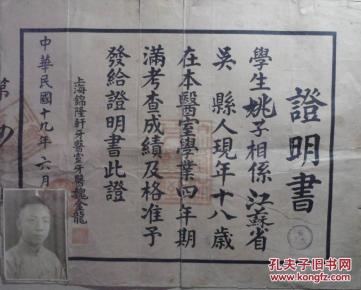 證明書
學生姚子相係江蘇省
吳縣人現年十八歲
在本醫室學業四年期
滿考查成績及格准予
發給證明書此證
上海錦隆軒牙醫室牙醫魏金龍
中華民國十九年六月
第
孔夫子旧书网